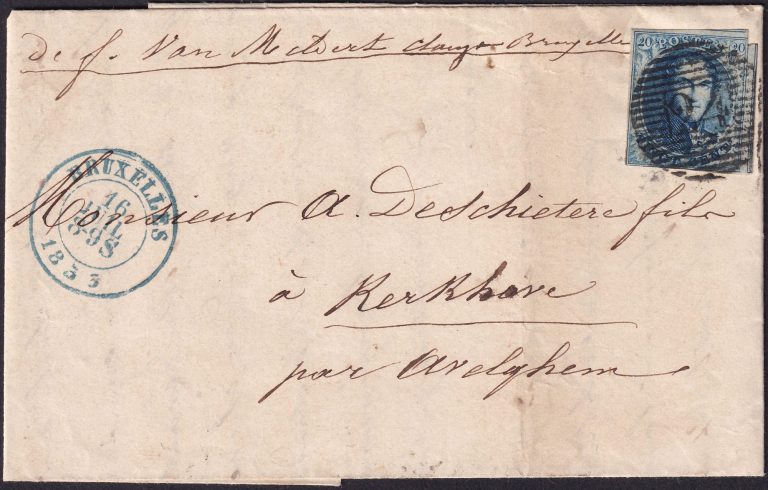 de f. Van Mebert Bruxelles
20 POSTES 20
BRUXELLES
16
JUIL
9S
1853
Monsieur A. DeSchietere fils
à Kerkhove
par Avelghem